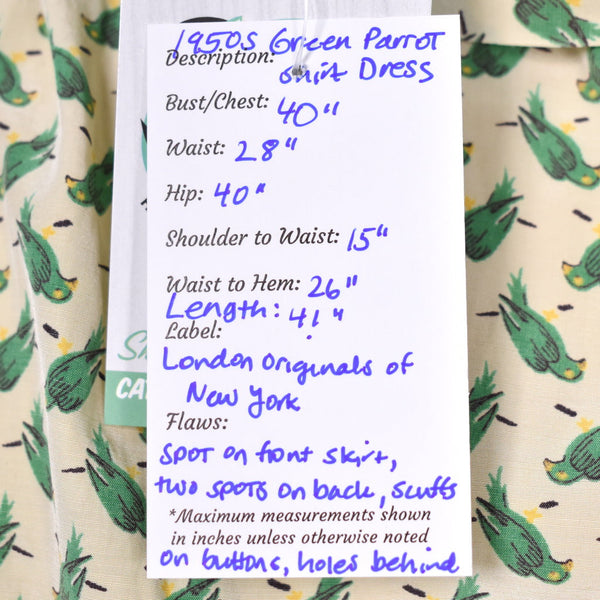 1950s Green Parrot
Description:
Shirt Dress
Bust/Chest: 40"
Waist: 28"
Hip: 40"
Shoulder to Waist: 15"
Waist to Hem: 26"
Length: 41"
Label:
London Originals of
New York
Flaws:
spot on front skirt,
two spots on back, scuffs
*Maximum measurements shown
in inches unless otherwise noted
on buttons, holes behind